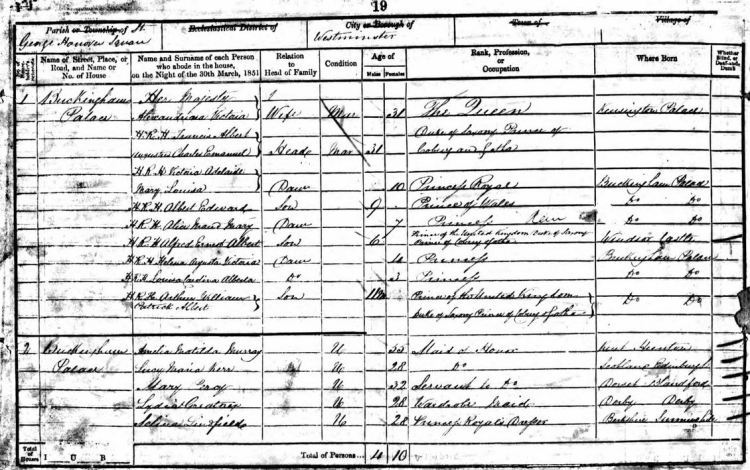 19
Parish or Township of St. George Hanover Square
Ecclesiastical District of
City or Borough of Westminster
Town of
Village of
Name of Street, Place, or Road, and Name or No. of House
Name and Surname of each Person who abode in the house, on the Night of the 30th March, 1851
Relation to Head of Family
Condition
Age of
Males Females
Rank, Profession, or Occupation
Where Born
Whether Blind, or Deaf-and-Dumb
1 Buckingham Palace
Her Majesty
Alexandrina Victoria Wife Mar 31 The Queen Kensington Palace
H.R.H. Francis Albert
Augustus Charles Emanuel Head Mar 31 Duke of Saxony Prince of Coburg and Gotha
H.R.H. Victoria Adelaide
Mary Louisa Daur 10 Princess Royal Buckingham Palace
H.R.H. Albert Edward Son 9 Prince of Wales Do Do
H.R.H. Alice Maud Mary Daur 7 Princess Do Do
H.R.H. Alfred Ernest Albert Son 6 Prince of the United Kingdom Duke of Saxony Prince of Coburg & Gotha Windsor Castle
H.R.H. Helena Augusta Victoria Daur 4 Princess Buckingham Palace
H.R.H. Louisa Carolina Alberta Do 3 Princess Do Do
H.R.H. Arthur William
Patrick Albert Son Prince of the United Kingdom Duke of Saxony Prince of Coburg & Gotha Do Do
2 Buckingham Palace
Amelia Matilda Murray U 55 Maid of Honor Kent
Lucy Maria Kerr U 28 Do Scotland Edinburgh
Mary Gray U 32 Servant to Do Dorset Blandford
Lydia U 28 Wardrobe Maid Derby Derby
Selina U 28 Princess Royal's Dresser Berkshire Sunninghill
Total of Houses
I U B
Total of Persons 4 10